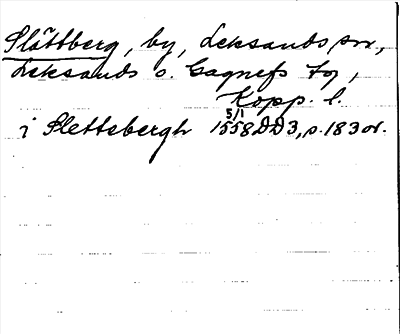 Slättberg, by, Leksands sn,
Leksands o. Gagnefs tg,
Kopp. l.
i Slettsbergh 1558 5/1 DD3, s. 183 v.